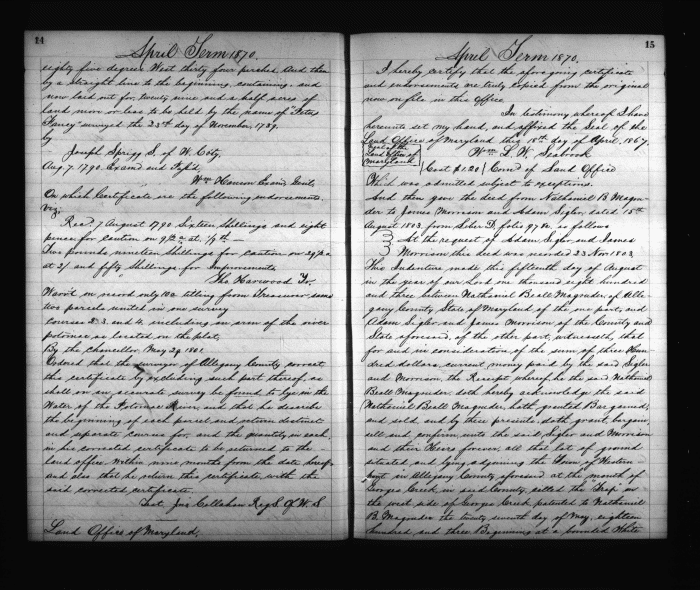 14
April Term 1870.
eighty five degrees West thirty four perches And then
by a straight line to the beginning, containing, and
now laid out for, twenty nine and a half acres of
land more or less to be held by the name of "Peters
Fancy" surveyed the 23rd day of November, 1789.
by
Joseph Sprigg S. of W. Cty,
Aug 7. 1790 Examd and
On which Certificate are the following endorsements.
viz;
Recd 7 August 1790 Sixteen Shillings and eight
pence for Caution on
Two pounds nineteen Shillings for Caution on
at 2/. and fifty Shillings for Improvements
Tho Harwood Tr.
on record only 100 titling from Treasurer same
two parcels united in one survey
Courses 2. 3. and 4, including in area of the river
potomac as located on the plat,
By the Chancellor May 29 1801
Ordered that the surveyor of Allegany County correct
the certificate by excluding such part thereof, as
shall on an accurate survey be found to lye in the
Water of the Potomac River, and that he describe
the beginning of each parcel and return distinct
and separate courses for, and the quantity in each,
in his corrected certificate to be returned to the
land office within nine months from the date hereof
and also that he return this certificate with the
said corrected certificate.
Test Jno Callahan Reg L. Of W. S
Land Office of Maryland,
15
April Term 1870.
I hereby certify that the aforegoing certificate
and endorsements are truly copied from the original
now on file in this Office
In testimony whereof I have
hereunto set my hand, and affixed the Seal of the
Land Office of Maryland this 18th day of April, 1867.
Seal of the
Land Office of
Maryland
Wm L. W. Seabrook
Cost $1.20
Comr of Land Office
Which was admitted subject to exceptions.
And then gave the deed from Nathaniel B. Magru-
der to James Morrison and Adam Sigler, dated 15th
August 1803, from Liber D, folio 97 &c, as follows
At the request of Adam Sigler and James
Morrison this deed was recorded 23 Nov 1803,
This Indenture made this fifteenth day of August
in the year of our Lord one thousand eight hundred
and three between Nathaniel Beall Magruder, of Alle-
gany County, State of Maryland of the one part, and
Adam Sigler and James Morrison of the County and
State foresaid, of the other part, witnesseth, that
for and in consideration of the sum of three Hun-
dred dollars, current money paid by the said Sigler
and Morrison, the Receipt whereof, he the said Nathaniel
Beall Magruder doth hereby acknowledge the said
Nathaniel Beall Magruder, hath granted Bargained,
and sold, and by these presents, doth grant, bargain,
sell and confirm, unto the said, Sigler and Morrison
and their Heirs forever, all that lot of ground
situated and lying adjoining the Town of Western-
port in Allegany County aforesaid at the mouth of
Georges Creek in said County, called the on
the west side of Georges Creek patented to Nathaniel
B. Magruder the twenty seventh day of May, eighteen
hundred, and three Beginning at a bounded White